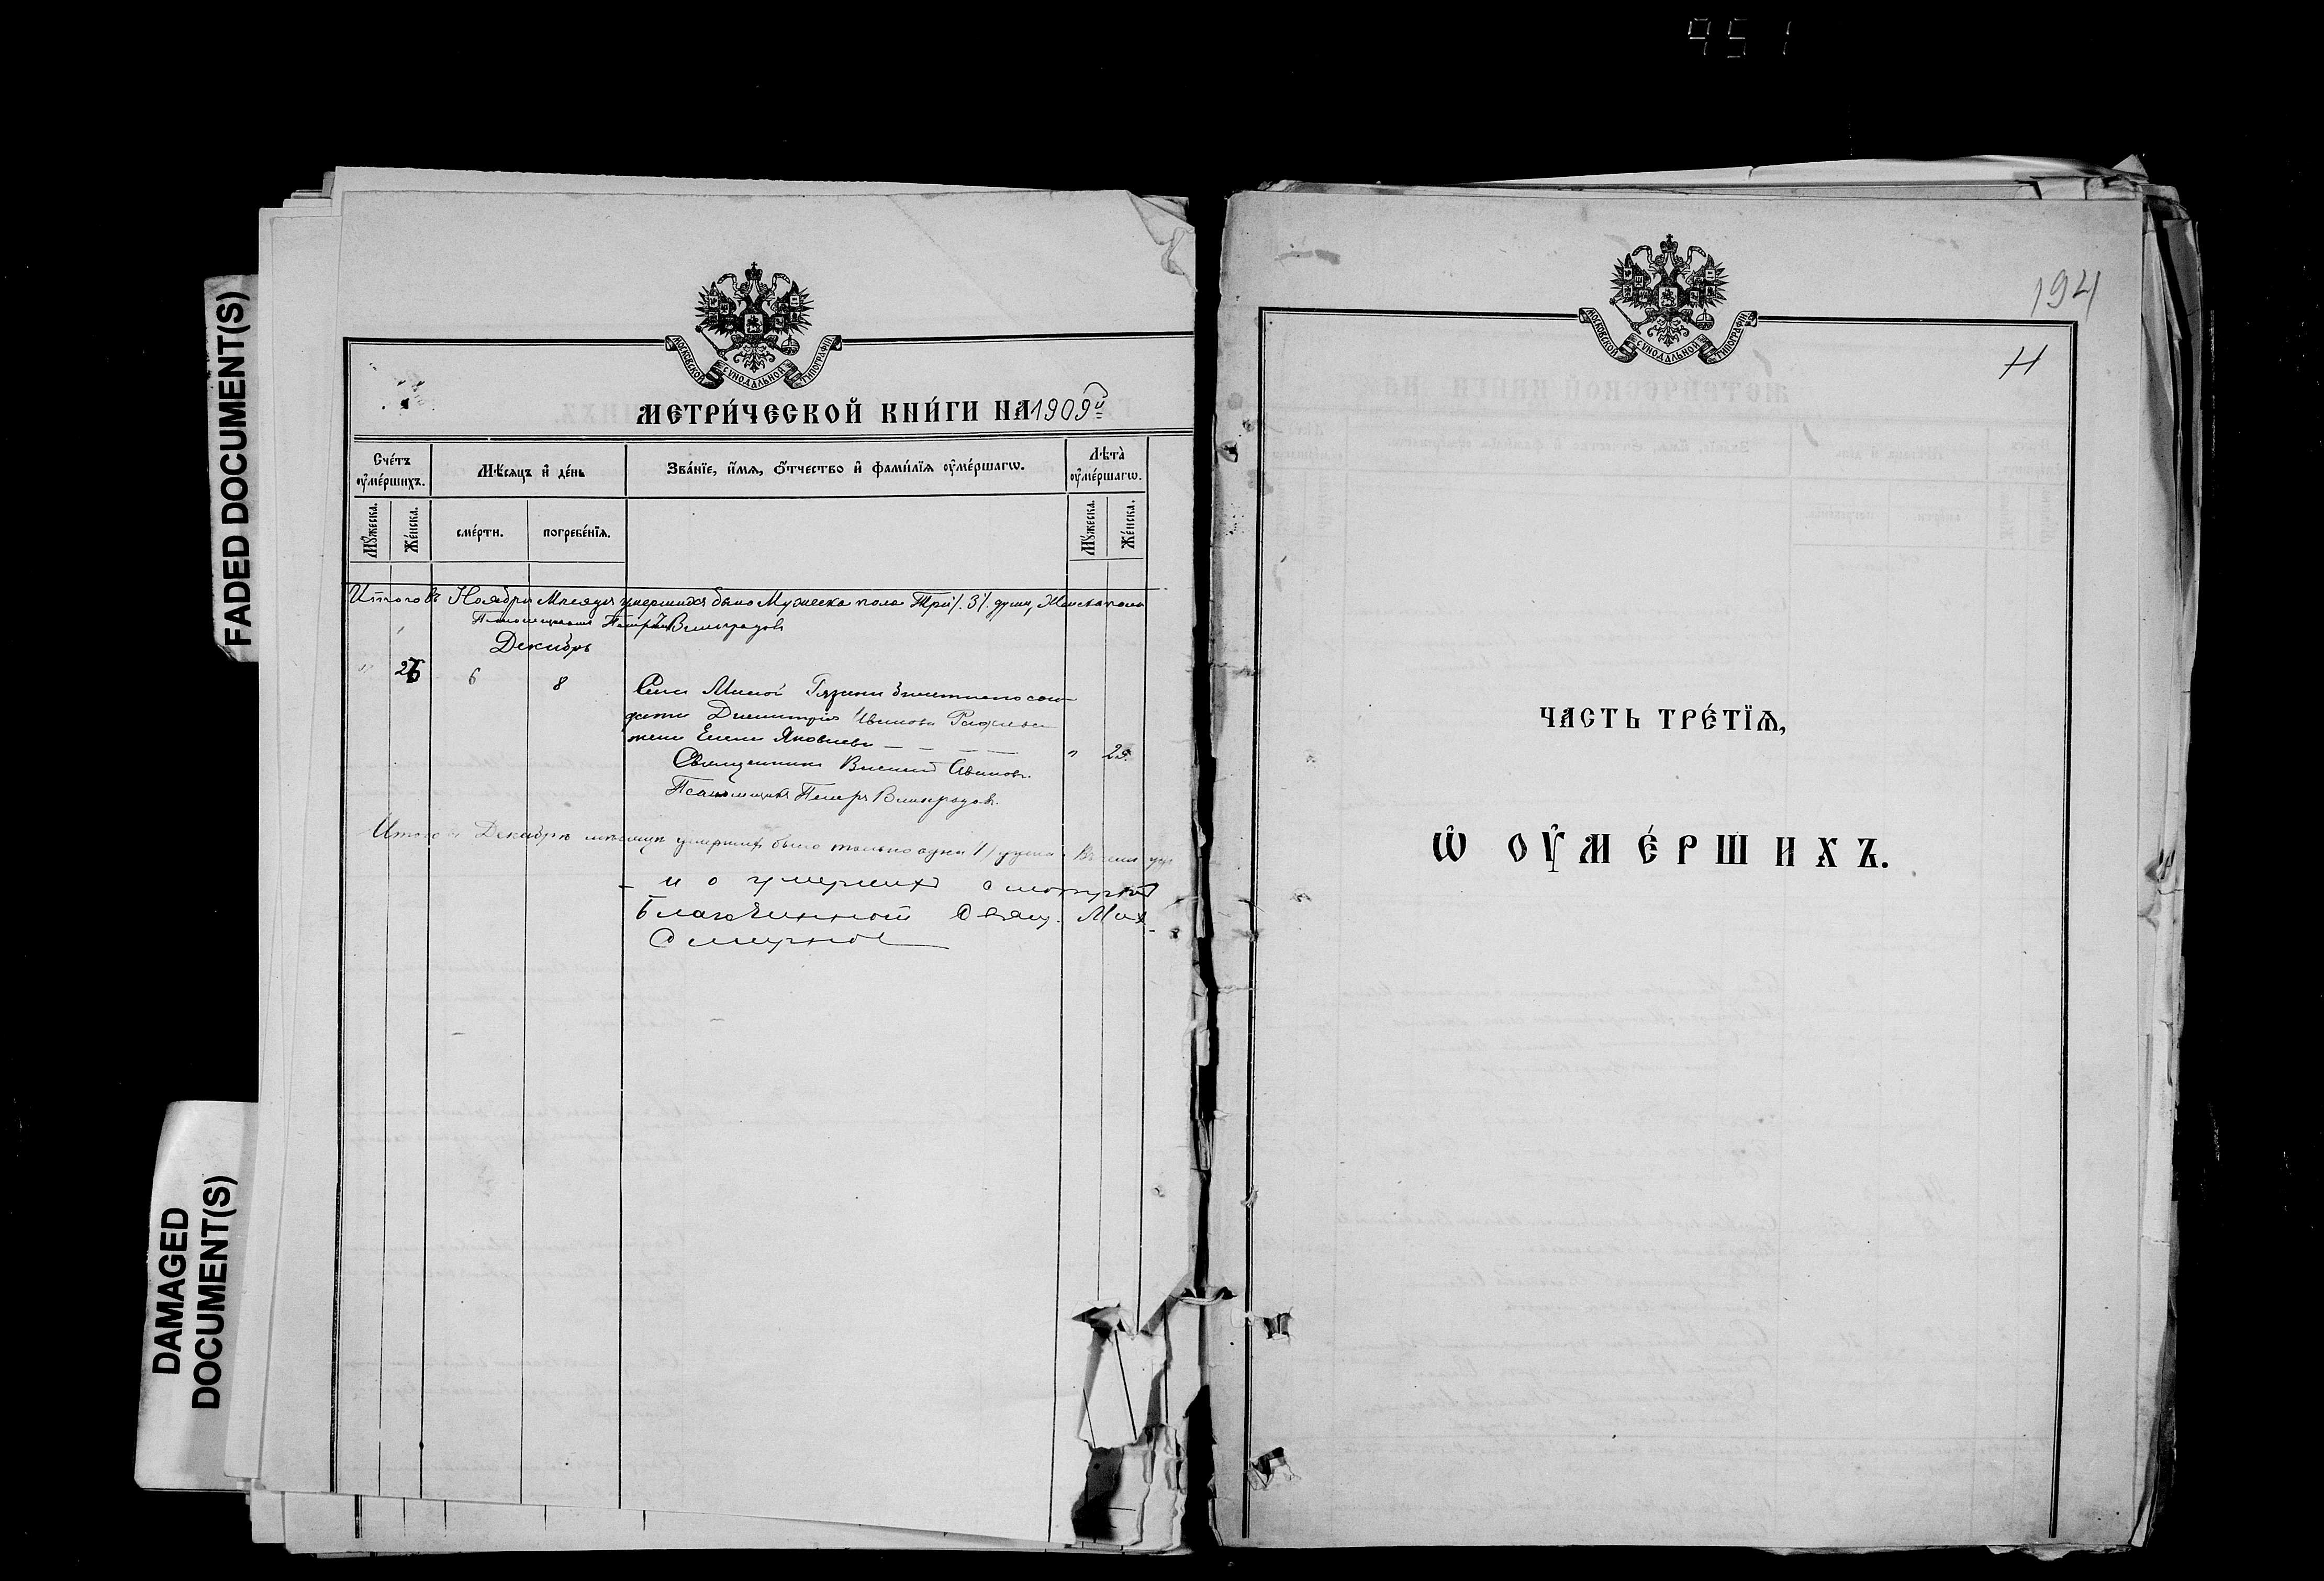 951
FADED DOCUMENT(S)
DAMAGED
DOCUMENT(S)
МОСКОВСКОЙ СУНОДАЛЬНОЙ ТИПОГРАФІИ
МЕТРИ́ЧЕСКОЙ КНИ́ГИ НА 1909й
Сче́тъ
оу҆ме́ршихъ.
Мѣ́сяцъ и҆ де́нь
Зва́нїе, и҆́мѧ, ѻ҆́тчество и҆ фами́лїѧ оу҆ме́ршагѡ.
Лѣ́та̀
оу҆ме́ршагѡ.
Мꙋ́жеска.
Же́нска.
сме́рти.
погребе́нїѧ.
Мꙋ́жеска.
Же́нска.
Итого въ Ноябрѣ Мѣсяцѣ умершихъ было Мужеска пола Три /.3/. души, Женска пола
Псаломщикъ Петръ Виноградовъ
Декабрь
" 26 6 8 Села Малой
Димитрія Иванова
жена Елена Яковлева " 25.
Священникъ Василій
Псаломщикъ Петръ Виноградовъ.
Итого въ Декабрѣ мѣсяцѣ умершихъ было только одна /1/ душа
и о умершихъ смотрѣлъ
Благочинный Свящ. Мих.
Смирнов
МОСКОВСКОЙ СУНОДАЛЬНОЙ ТИПОГРАФІИ
194
Н
ЧАСТЬ ТРЕ́ТЇѦ,
Ѽ ОУ҆МЕ́РШИХЪ.